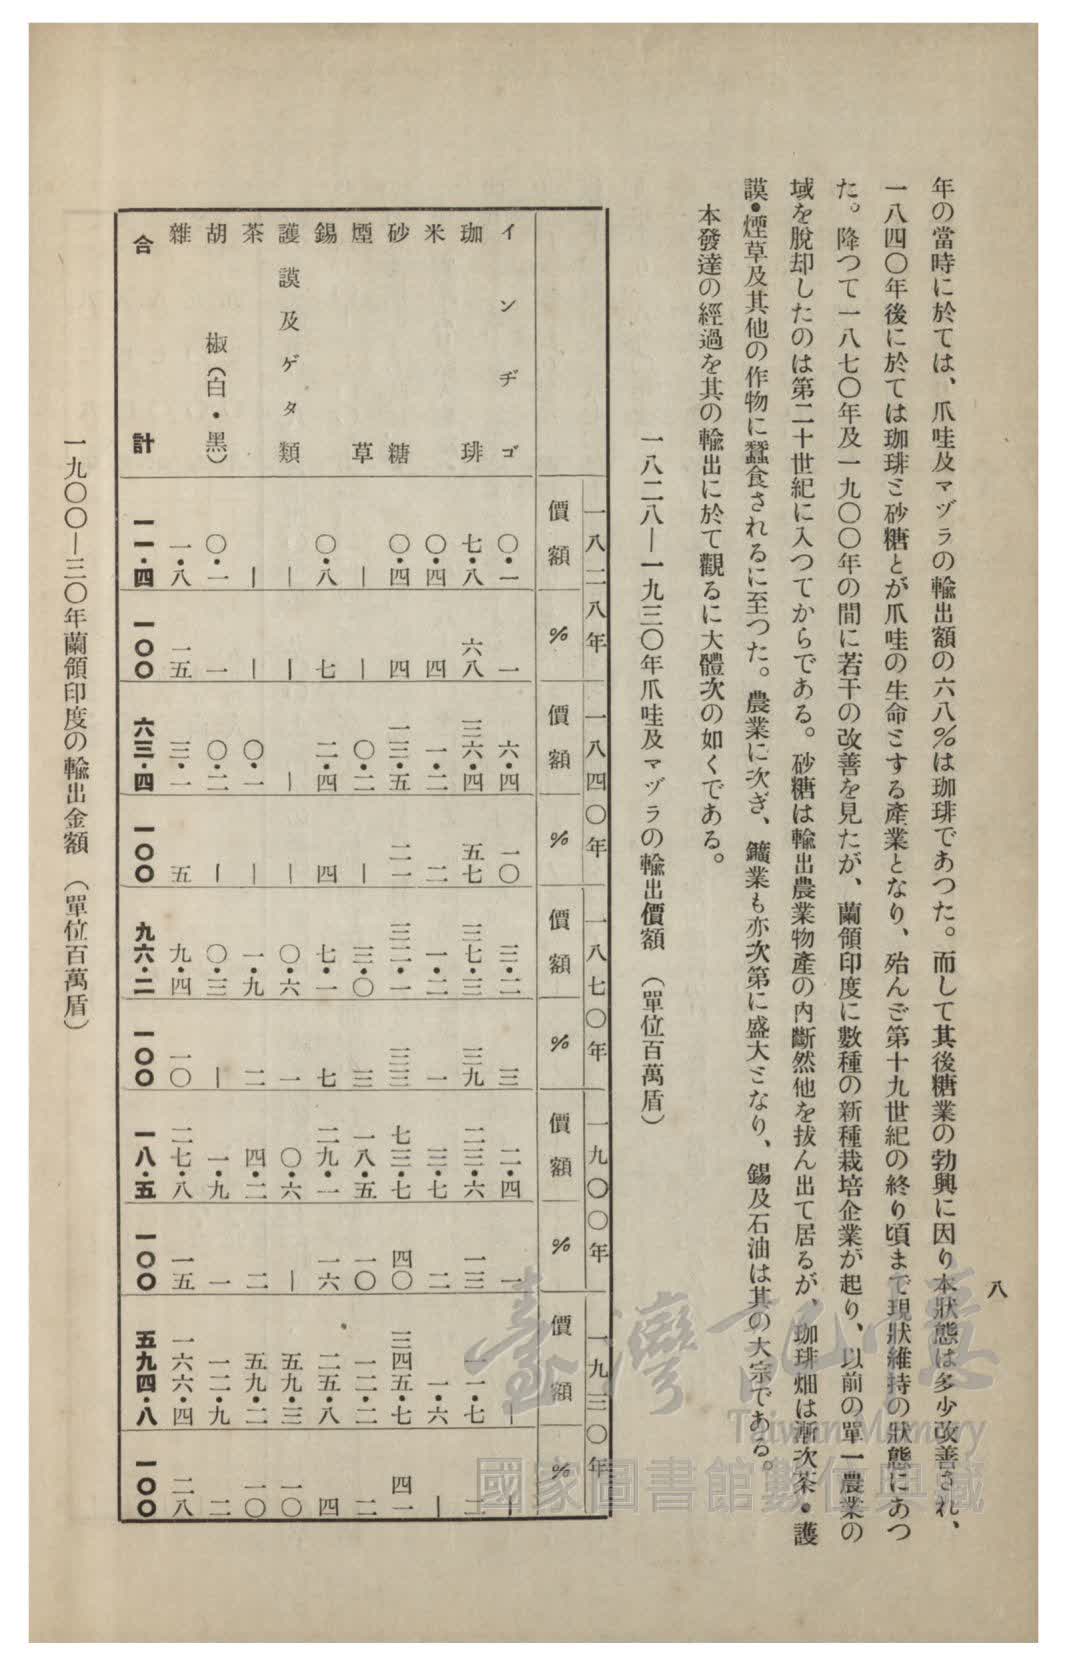 八
年の當時に於ては、爪哇及マヅラの輸出額の六八%は珈琲であつた。而して其後糖業の勃興に因り本狀態は多少改善され、
一八四〇年後に於ては珈琲と砂糖とが爪哇の生命とする產業となり、殆んど第十九世紀の終り頃まで現狀維持の狀態にあつ
た。降つて一八七〇年及一九〇〇年の間に若干の改善を見たが、蘭領印度に數種の新種栽培企業が起り、以前の單一農業の
域を脫却したのは第二十世紀に入つてからである。砂糖は輸出農業物產の內斷然他を拔ん出て居るが、珈琲畑は漸次茶・護
謨・煙草及其他の作物に蠶食されるに至つた。農業に次ぎ、鑛業も亦次第に盛大となり、錫及石油は其の大宗である。
本發達の經過を其の輸出に於て觀るに大體次の如くである。
一八二八—一九三〇年爪哇及マヅラの輸出價額 (單位百萬盾)
一八二八年 一八四〇年 一八七〇年 一九〇〇年 一九三〇年
價額 % 價額 % 價額 % 價額 % 價額 %
インヂゴ 〇・一 一 六・四 一〇 三・二 三 二・四 一 — —
珈琲 七・八 六八 三六・四 五七 三七・三 三九 二三・六 一三 一一・七 二
米 〇・四 四 一・二 二 一・二 一 三・七 二 一・六 —
砂糖 〇・四 四 一三・五 二一 三二・一 三三 七三・七 四〇 三四五・七 四一
煙草 — — 〇・二 — 三・〇 三 一八・五 一〇 一二・二 二
錫 〇・八 七 二・四 四 七・一 七 二九・一 一六 二五・八 四
護謨及ゲタ類 — — — — 〇・六 一 〇・六 — 五九・三 一〇
茶 — — 〇・一 — 一・九 二 四・二 二 五九・二 一〇
胡椒(白・黑) 〇・一 一 〇・二 — 〇・三 — 一・九 一 一二・九 二
雜 一・八 一五 三・一 五 九・四 一〇 二七・八 一五 一六六・四 二八
合計 一一・四 一〇〇 六三・四 一〇〇 九六・二 一〇〇 一八・五 一〇〇 五九四・八 一〇〇
一九〇〇—三〇年蘭領印度の輸出金額 (單位百萬盾)
臺灣記憶
Taiwan Memory
國家圖書館數位典藏